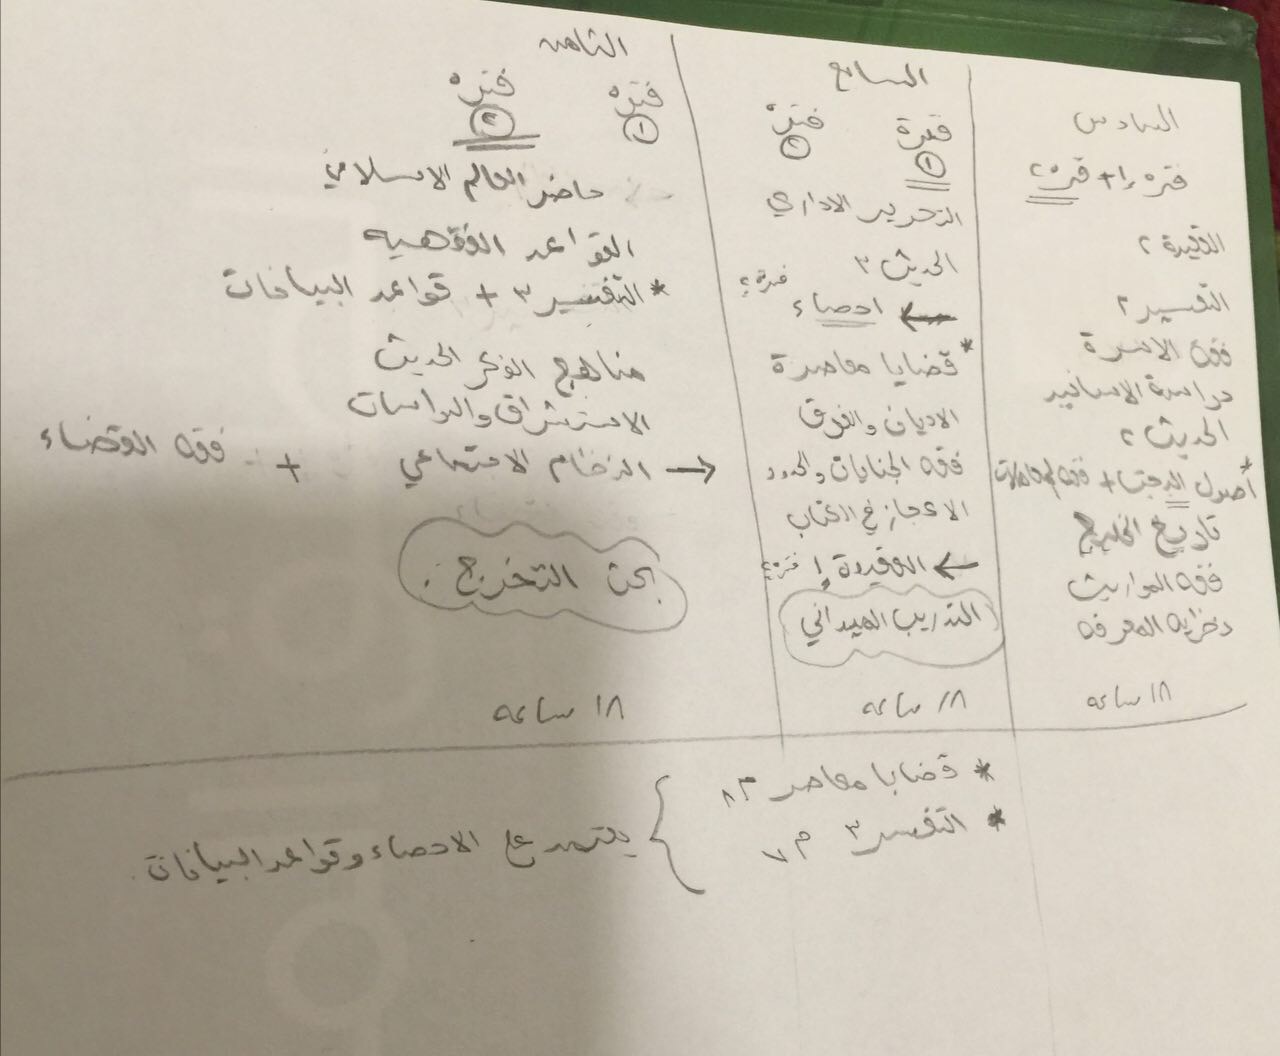 السادس
فتره ١ + فتره ٢
العقيدة ٢
التفسير ٢
فقه الاسرة
دراسة الاسانيد
الحديث ٢
* أصول البحث + فقه المعاملات
تاريخ الخليج
فقه المواريث
نظرية المعرفه
١٨ ساعه
السابع
فترة ١ فتره ٢
التحرير الاداري
الحديث ٣
← احصاء فترة ٢
* قضايا معاصرة
الاديان والفرق
فقه الجنايات والحدود
الاعجاز في الكتاب
← العقيدة ٤ فترة ٢
التدريب الميداني
١٨ ساعه
الثامن
فتره ١ فتره ٢
حاضر العالم الاسلامي
القواعد الفقهيه
* التفسير ٣ + قواعد البيانات
مناهج الفكر الحديث
الاستشراق والدراسات
→ النظام الاجتماعي + فقه القضاء
بحث التخرج .
١٨ ساعه
* قضايا معاصر م٨
* التفسير ٣ م٧
يعتمد على الاحصاء وقواعد البيانات.